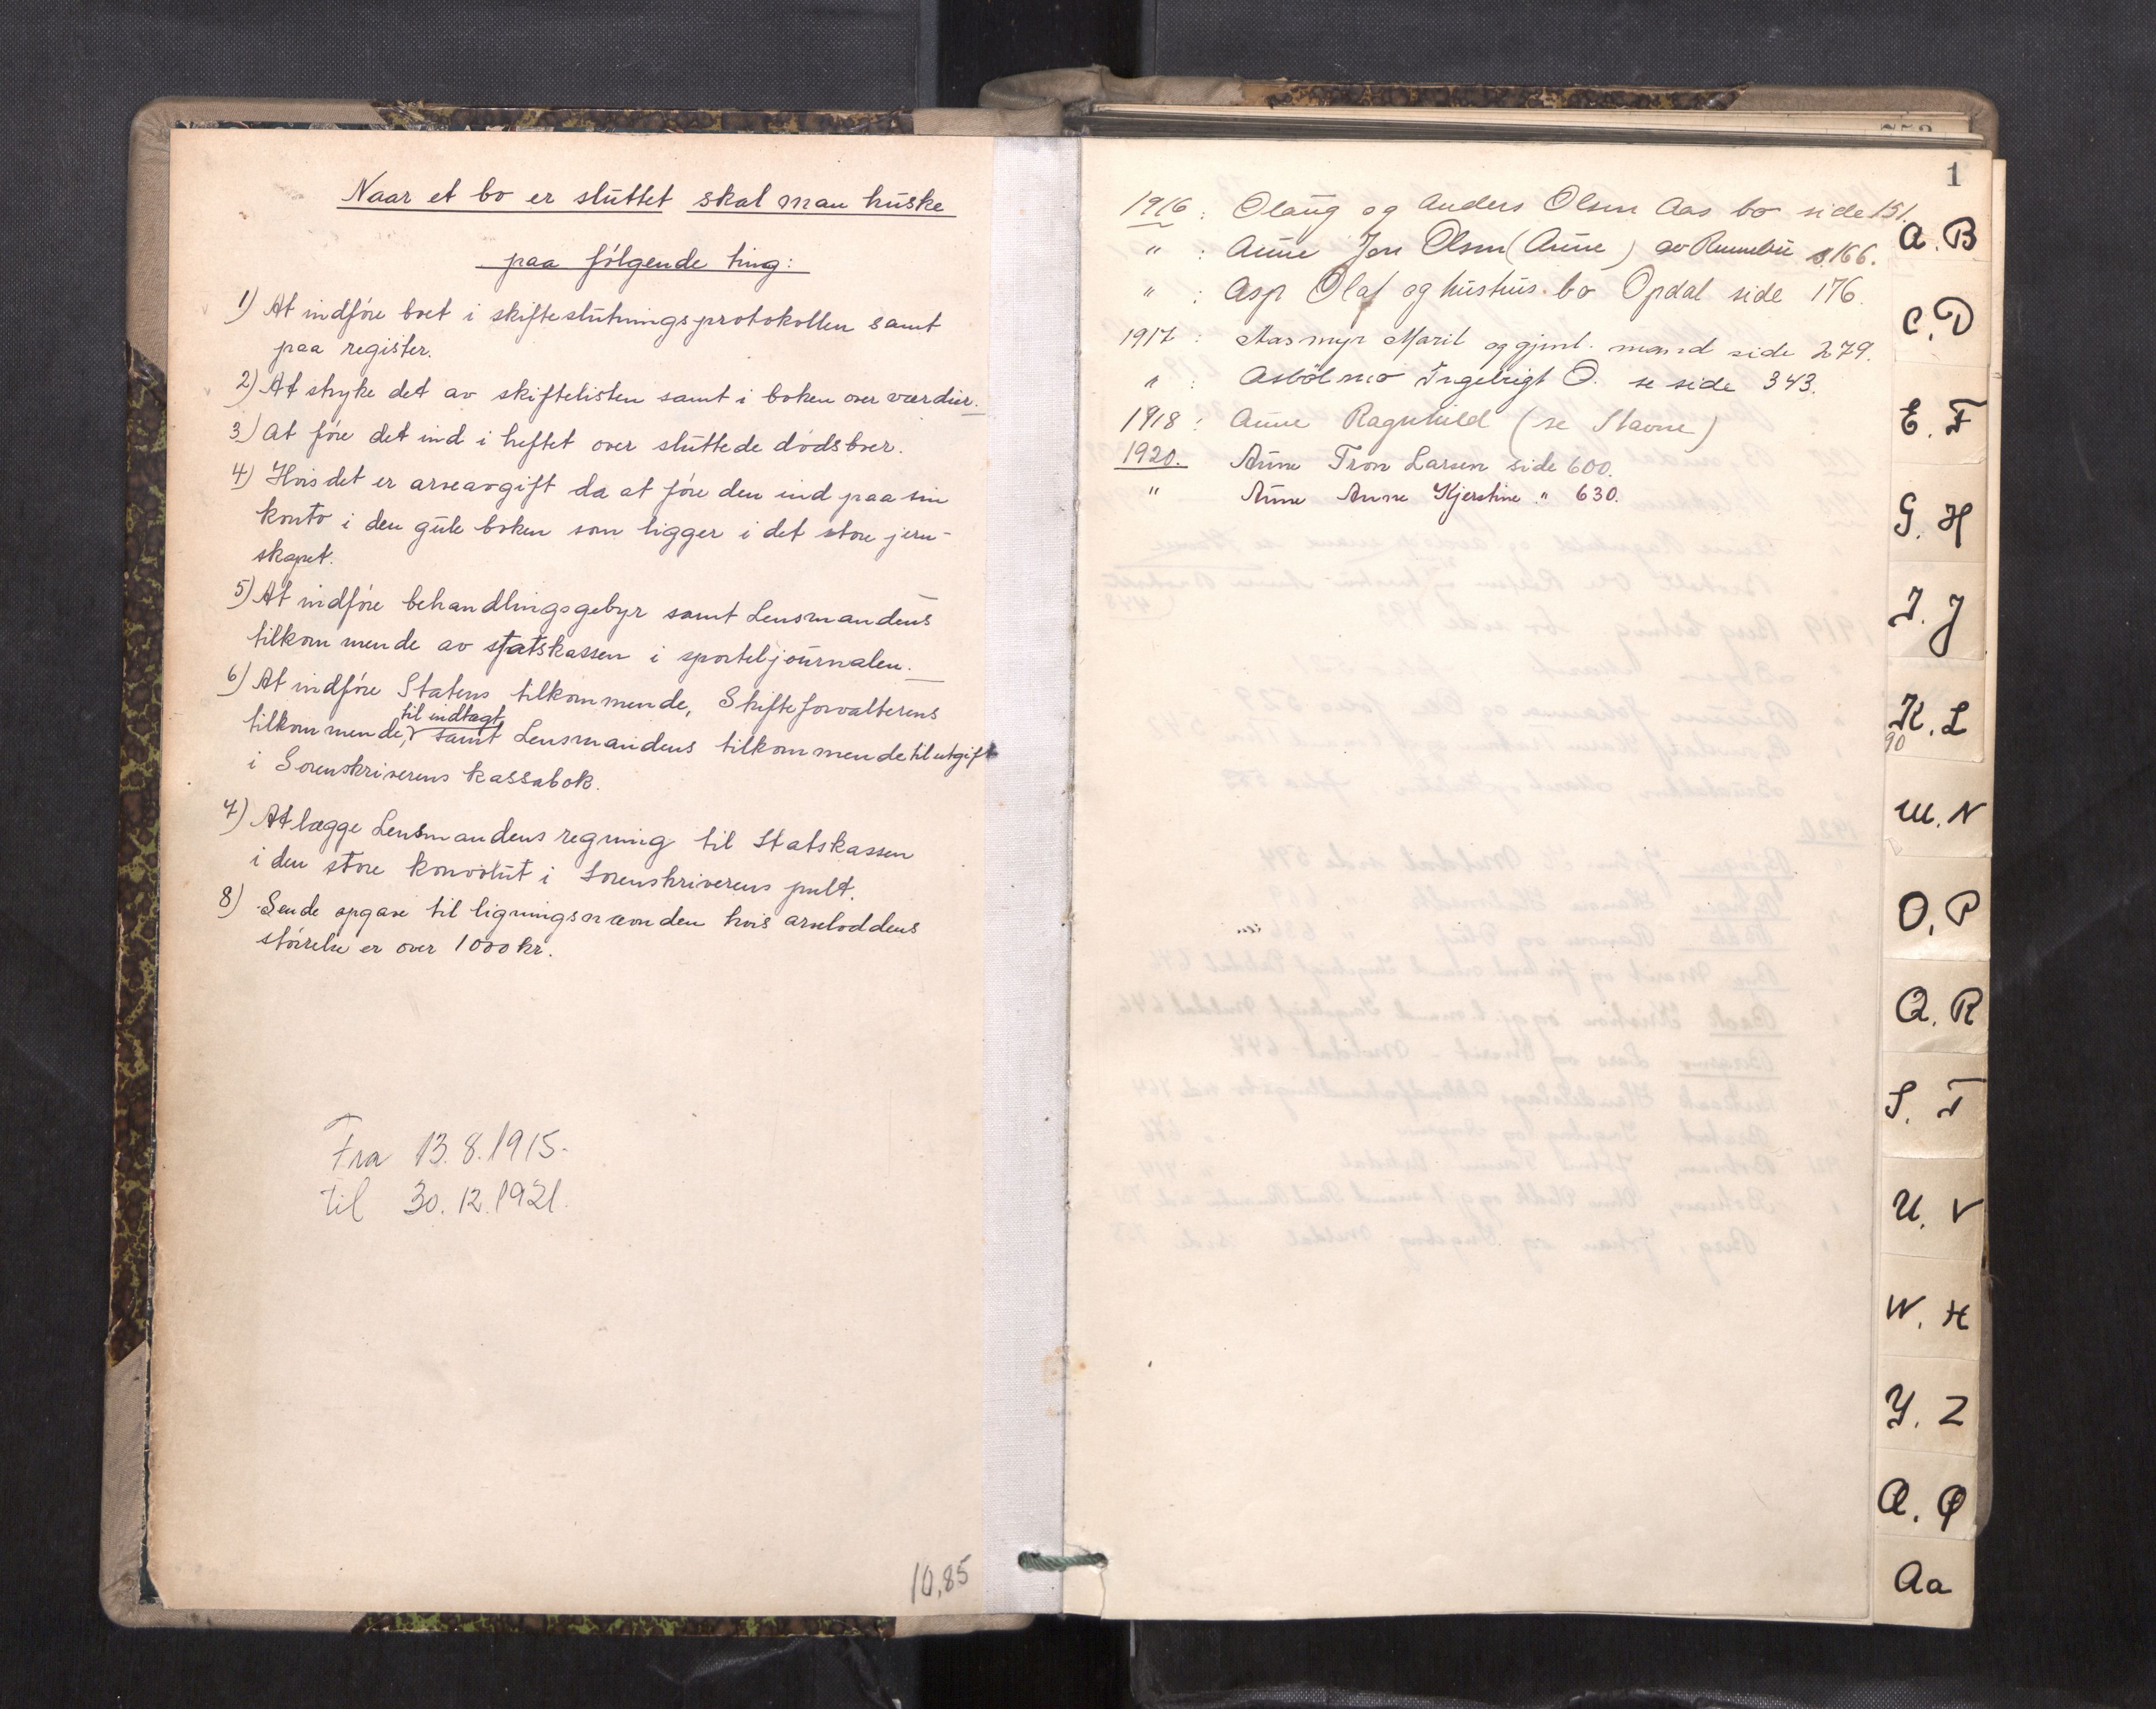 Naar et bo er sluttet skal man huske
paa følgende ting:
1) At indføre boet i skifteslutningsprotokollen samt
paa register.
2) At stryke det av skiftelisten samt i boken over værdier.
3) At føre det ind i heftet over sluttede dødsboer.
4) Hvis det er arveavgift da at føre den ind paa sin
konto i den gule boken som ligger i det store jern-
skapet.
5) At indføre behandlingsgebyr samt Lensmandens
tilkommende av statskassen i sporteljournalen.
6) At indføre Statens tilkommende, Skifteforvalterens
til indtægt
tilkommende, samt Lensmandens tilkommende til utgift
i Sorenskriverens kassabok.
7) At lægge Lensmandens regning til Statskassen
i den store konvolut i Sorenskriverens pult.
8) Sende opgave til ligningsnævnden hvis arveloddens
størrelse er over 1000 kr.
Fra 13.8.1915.
til 30.12.1921.
10,85
1
1916 : Olaug og Anders Olsen Aas bo side 151.
" : Aune Jon Olsen (Aune) av Rennebu s. 166.
" : Asp Olaf og hustrus bo Opdal side 176.
1917 : Aasmyr Marit og gjenl. mand side 279.
" : Asbølmo Ingebrigt O. se side 343.
1918 : Aune Ragnhild (se Stavne)
1920. Aune Tron Larsen side 600.
" Aune Anne Kjerstine " 630.
A. B
C. D
E. F
G. H
I. J
K. L
90
M. N
O. P
Q. R
S. T
U. V
Y. Z
Aa